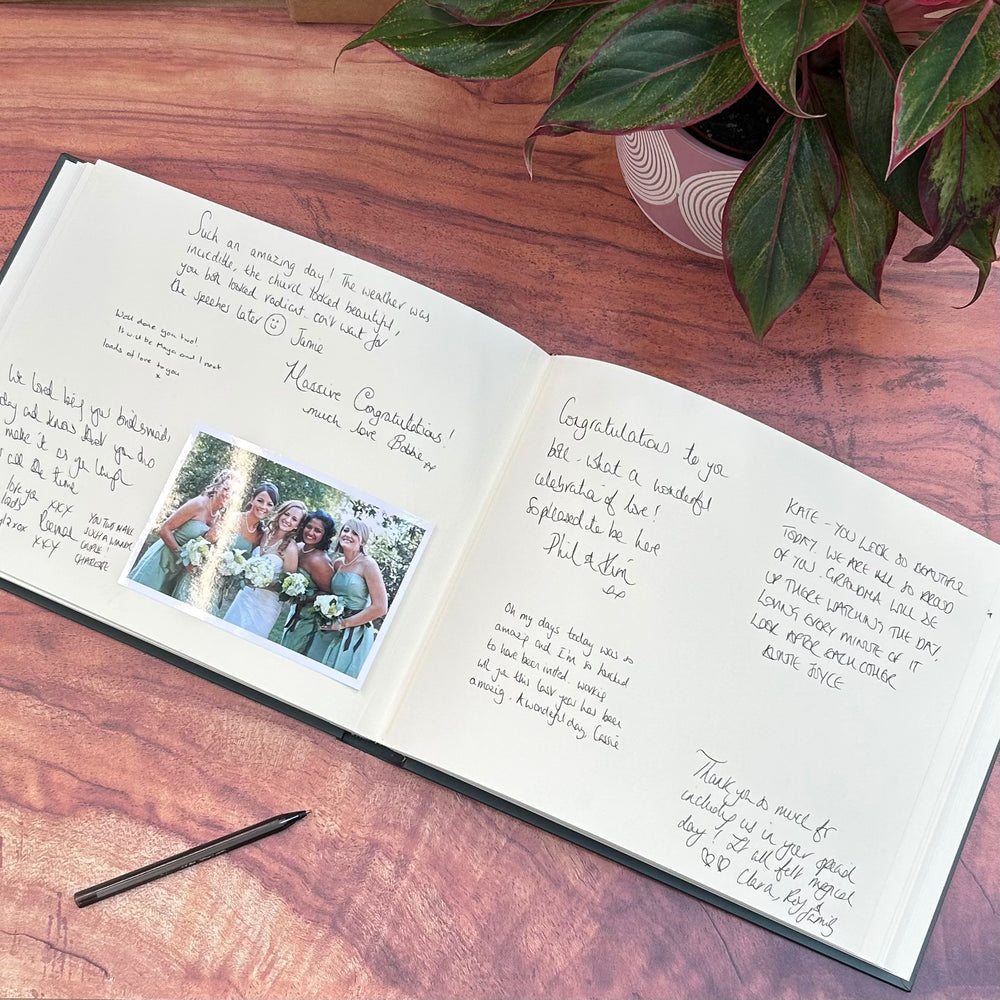 Such an amazing day! The weather was
incredible, the church looked beautiful,
you both looked radiant. can't wait for
the speeches later Jamie
Well done you two!
It will be Maya and I next
loads of love to you
x
Massive Congratulations!
much love Bobbie xx
We loved being your bridesmaids
day and know that you two
make it as you laugh
all the time
love you xxx
xxx
YOU TWO MAKE
SUCH A
COUPLE!
CHARLOTTE
Congratulations to you
both - what a wonderful
celebration of love!
So pleased to be here
Phil & Kim
xx
Oh my days today was so
amazing and I'm so honoured
to have been invited. working
with you this last year has been
amazing. A wonderful day, Cassie
KATE - YOU LOOK SO BEAUTIFUL
TODAY. WE ARE ALL SO PROUD
OF YOU. GRANDMA WILL BE
UP THERE WATCHING THE DAY,
LOVING EVERY MINUTE OF IT
LOOK AFTER EACH OTHER
AUNTIE JOYCE
Thank you so much for
including us in your special
day! It all felt magical
Clara, Roy & family